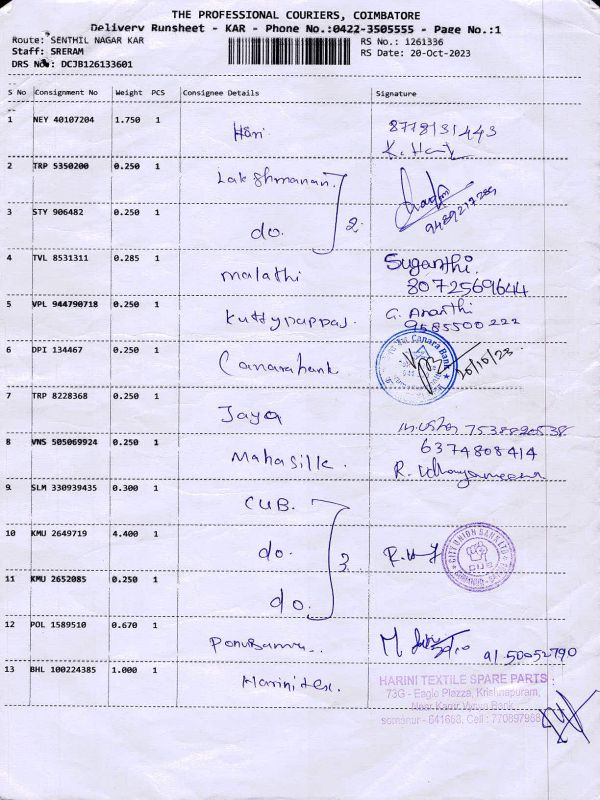 THE PROFESSIONAL COURIERS, COIMBATORE
Delivery Runsheet - KAR - Phone No.:0422-3505555 - Page No.:1
Route: SENTHIL NAGAR KAR
RS No.: 1261336
Staff: SRERAM
RS Date: 20-Oct-2023
DRS No.: DCJB126133601
S No Consignment No Weight PCS Consignee Details Signature
1 NEY 40107204 1.750 1 Hari 8778131443
K. Hari
2 TRP 5350200 0.250 1 Lakshmanan
3 STY 906482 0.250 1 do. 2 9489217289
4 TVL 8531311 0.285 1 malathi Suganthi.
8072569644
5 VPL 944790718 0.250 1 Kuttypappas. G. Ananthi
9585500222
6 DPI 134467 0.250 1 Canarabank Canara Bank 20/10/23
7 TRP 8228368 0.250 1 Jaya 7538890538
8 VNS 505069924 0.250 1 Mahasilk. 6374808414
R.
9 SLM 330939435 0.300 1 CUB.
10 KMU 2649719 4.400 1 do. 3 CITY UNION BANK LTD
CUB
11 KMU 2652085 0.250 1 do.
12 POL 1589510 0.670 1 M 91.50052790
13 BHL 100224385 1.000 1 Harinitex.
HARINI TEXTILE SPARE PARTS
73G - Eagle Plazza, Krishnapuram,
Near Karur Vysya Bank
somanur - 641668, Cell : 770897968